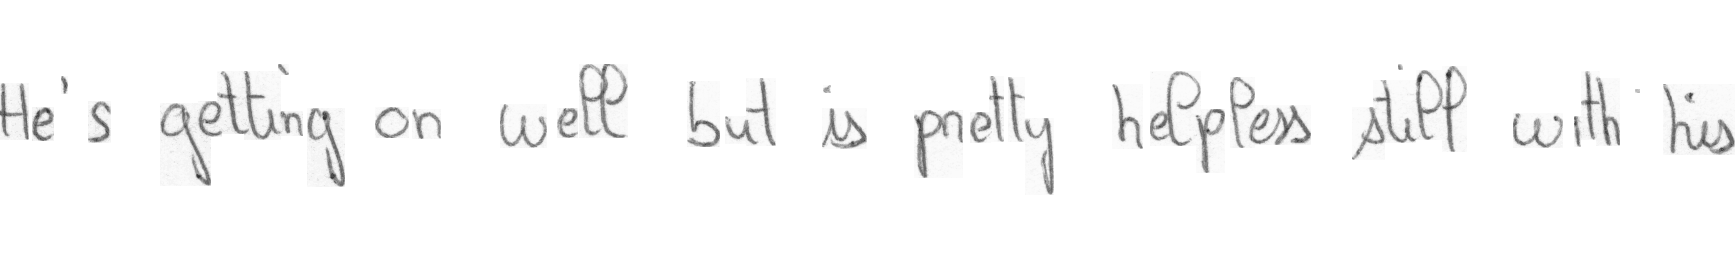 He's getting on well but is pretty helpless still with his